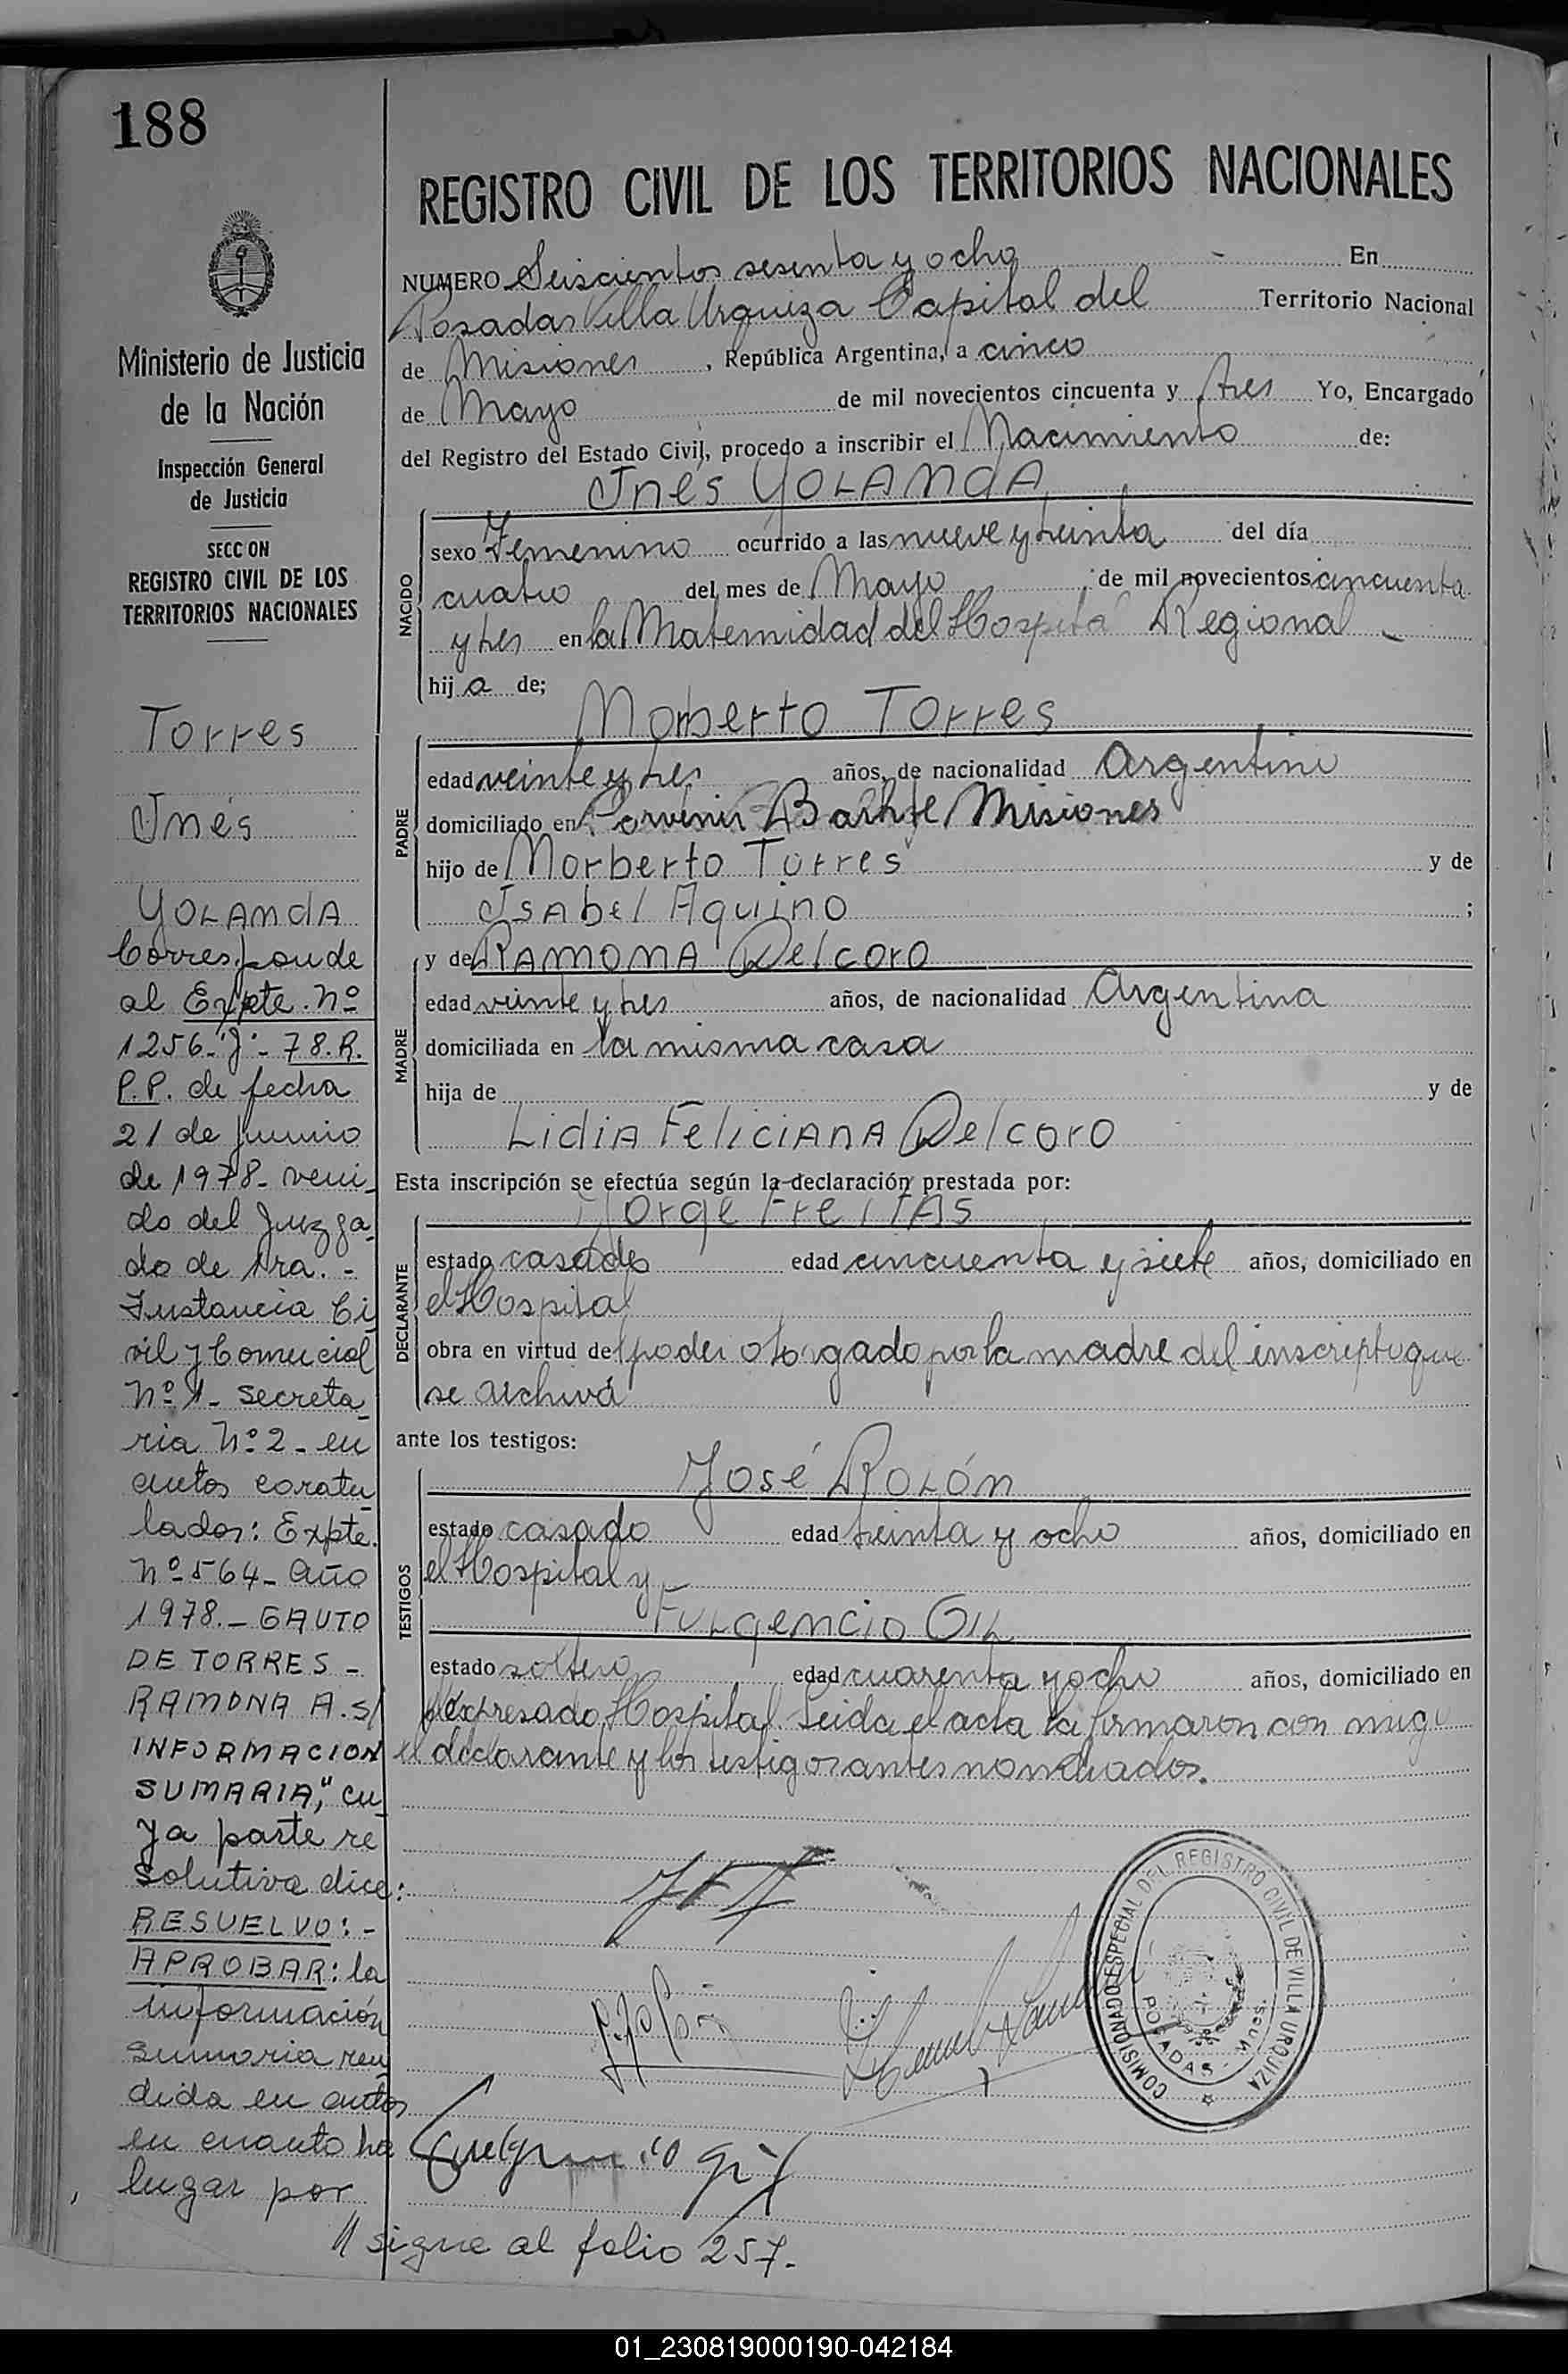 188
REGISTRO CIVIL DE LOS TERRITORIOS NACIONALES
Ministerio de Justicia
de la Nación
Inspección General
de Justicia
SECCION
REGISTRO CIVIL DE LOS
TERRITORIOS NACIONALES
Torres
Inés
YOLANdA
Corresponde
al Expte. Nº
1256-"J"-78.R.
P.P. de fecha
21 de Junio
de 1978- veni-
do del Juzga-
do de 1ra. -
Instancia Ci-
vil y Comercial
Nº 1- Secreta-
ria Nº 2- en
autos caratu-
lados: Expte.
Nº 564- Año
1978.- GAUTO
DE TORRES -
RAMONA A. S/
INFORMACION
SUMARIA," cu-
ya parte re
solutiva dice:
RESUELVO: -
APROBAR: la
información
sumaria ren-
dida en autos
en cuanto ha
lugar por
// sigue al folio 257.-
NUMERO Seiscientos sesenta y ocho - En
Posadas Villa Urquiza Capital del Territorio Nacional
de Misiones, República Argentina, a cinco
de Mayo de mil novecientos cincuenta y tres Yo, Encargado
del Registro del Estado Civil, procedo a inscribir el Nacimiento de:
Inés YOLANdA
NACIDO
sexo Femenino ocurrido a las nueve y treinta del día
cuatro del mes de Mayo de mil novecientos cincuenta
y tres en la Maternidad del Hospital Regional -
hija de;
Norberto Torres
PADRE
edad veinte y tres años, de nacionalidad Argentino
domiciliado en Porvenir Misiones
hijo de Norberto Torres y de
Isabel Aquino ;
y de RAMONA Delcoro
MADRE
edad veinte y tres años, de nacionalidad Argentina
domiciliada en la misma casa
hija de y de
Lidia Feliciana Delcoro
Esta inscripción se efectúa según la declaración prestada por:
Jorge Freitas
DECLARANTE
estado casado edad cincuenta y siete años, domiciliado en
el Hospital
obra en virtud del poder otorgado por la madre del inscripto que
se archiva
ante los testigos:
José ROLÓn
TESTIGOS
estado casado edad treinta y ocho años, domiciliado en
el Hospital y
Fulgencio Gil
estado soltero edad cuarenta y ocho años, domiciliado en
el expresado Hospital. Leida el acta la firmaron con migo
el declarante y los testigos antes nombrados.
COMISIONADO ESPECIAL DEL REGISTRO CIVIL DE VILLA URQUIZA
POSADAS - Mnes.
01_230819000190-042184